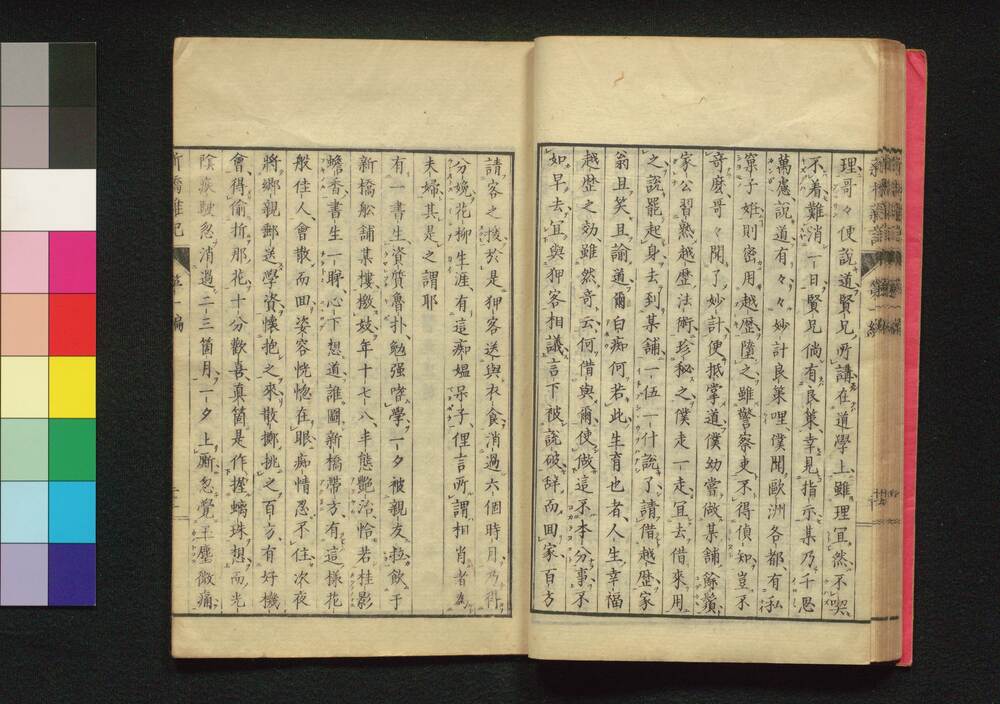 理、哥々便説道賢兄所講在道學上、雖理宜然、不喫
不着、難消一日、賢兄倘有良策、幸見指示某乃千思
萬慮説道有々々妙計良策哩、僕聞歐洲各都、有私
窠子妊則密用越歴墮之、雖警察吏不得偵知、豈不
奇麼、哥々聞了妙計便抵掌道、僕幼嘗做某舗餘鬚
家公習熟越歴法術、珍秘之僕走一走、宜去借來用
之説罷起身、去到某舗、一伍一什説了、請借越歴家
翁且笑且諭道、爾白痴何若、此生育也者、人生幸福
越歴之効雖然奇、云何借與爾、使做這不李分事、不
如早去、宜與狎客相議、言下被説破、辞而回家百方
請客之援、於是狎客送與衣食、消過六個時月、乃得
分娩、花柳生涯、有這痴媼呆子、俚言所謂相肖者為
夫婦、其是之謂耶
有一書生、資質魯扑、勉强嗜學、一夕被親友拉飲于
新橋舩舗某樓、檄妓、年十七八、丰態艶冶、恰若桂影
蟾香、書生一聊、心下想道、誰圖新橋帯方、有這様花
般佳人、會散而回、姿容恍惚在眼、痴情忍不住、次夜
將郷親郵送學資、懐抱之來、散擲挑之百方、有好機
會、得偷折那花、十分歡喜、真箇是作握驪珠想、而光
陰疾駛、忽消過二三箇月、一夕上厠、忽覺平塵微痛、
新橋雑記
第一編